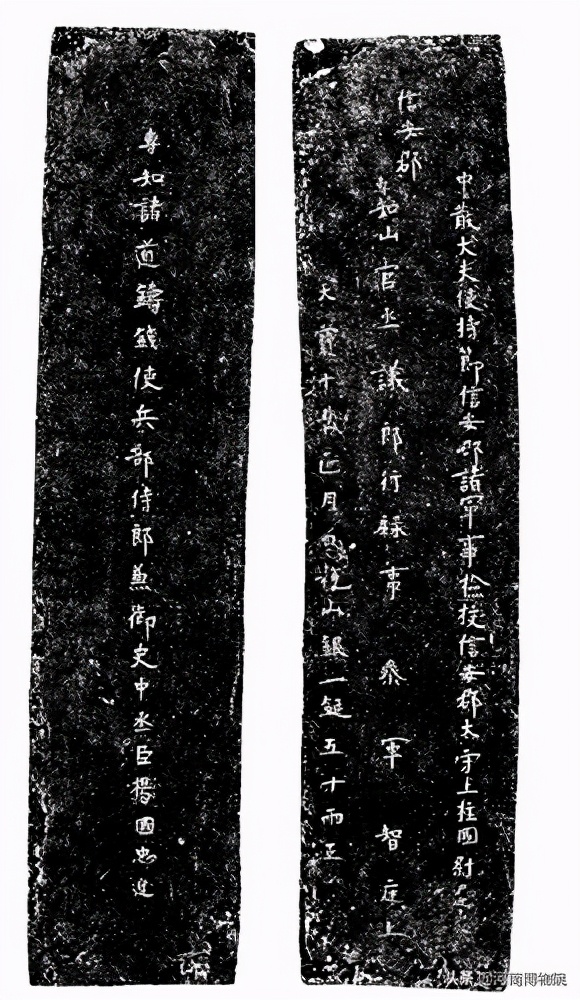 中散大夫使持節信安郡諸軍事檢挍信安郡太守上柱國尉
信安郡
專知山官丞議郎行錄事參軍智庭上
天寶十載正月日稅山銀一鋌五十兩正
專知諸道鑄錢使兵部侍郎兼御史中丞臣楊國忠進
头条@河南博物院